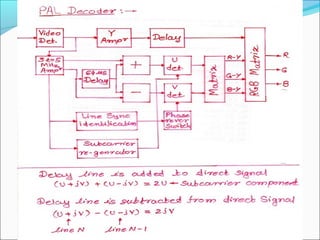 PAL Decoder :-
Video Det.
Y Ampr
Delay
3 to 5 MHz Ampr
64 μs Delay
+
−
U det
V det
Matrix
R-Y
G-Y
B-Y
RGB Matrix
R
G
B
Line Sync identification
Phase rever Switch
Subcarrier re-genrator
Delay line is added to direct Signal
(U+jV) + (U-jV) = 2U ← Subcarrier component
Delay line is subtracted from direct Signal
(U+jV) - (U-jV) = 2jV
↑ ↑
line N line N-1